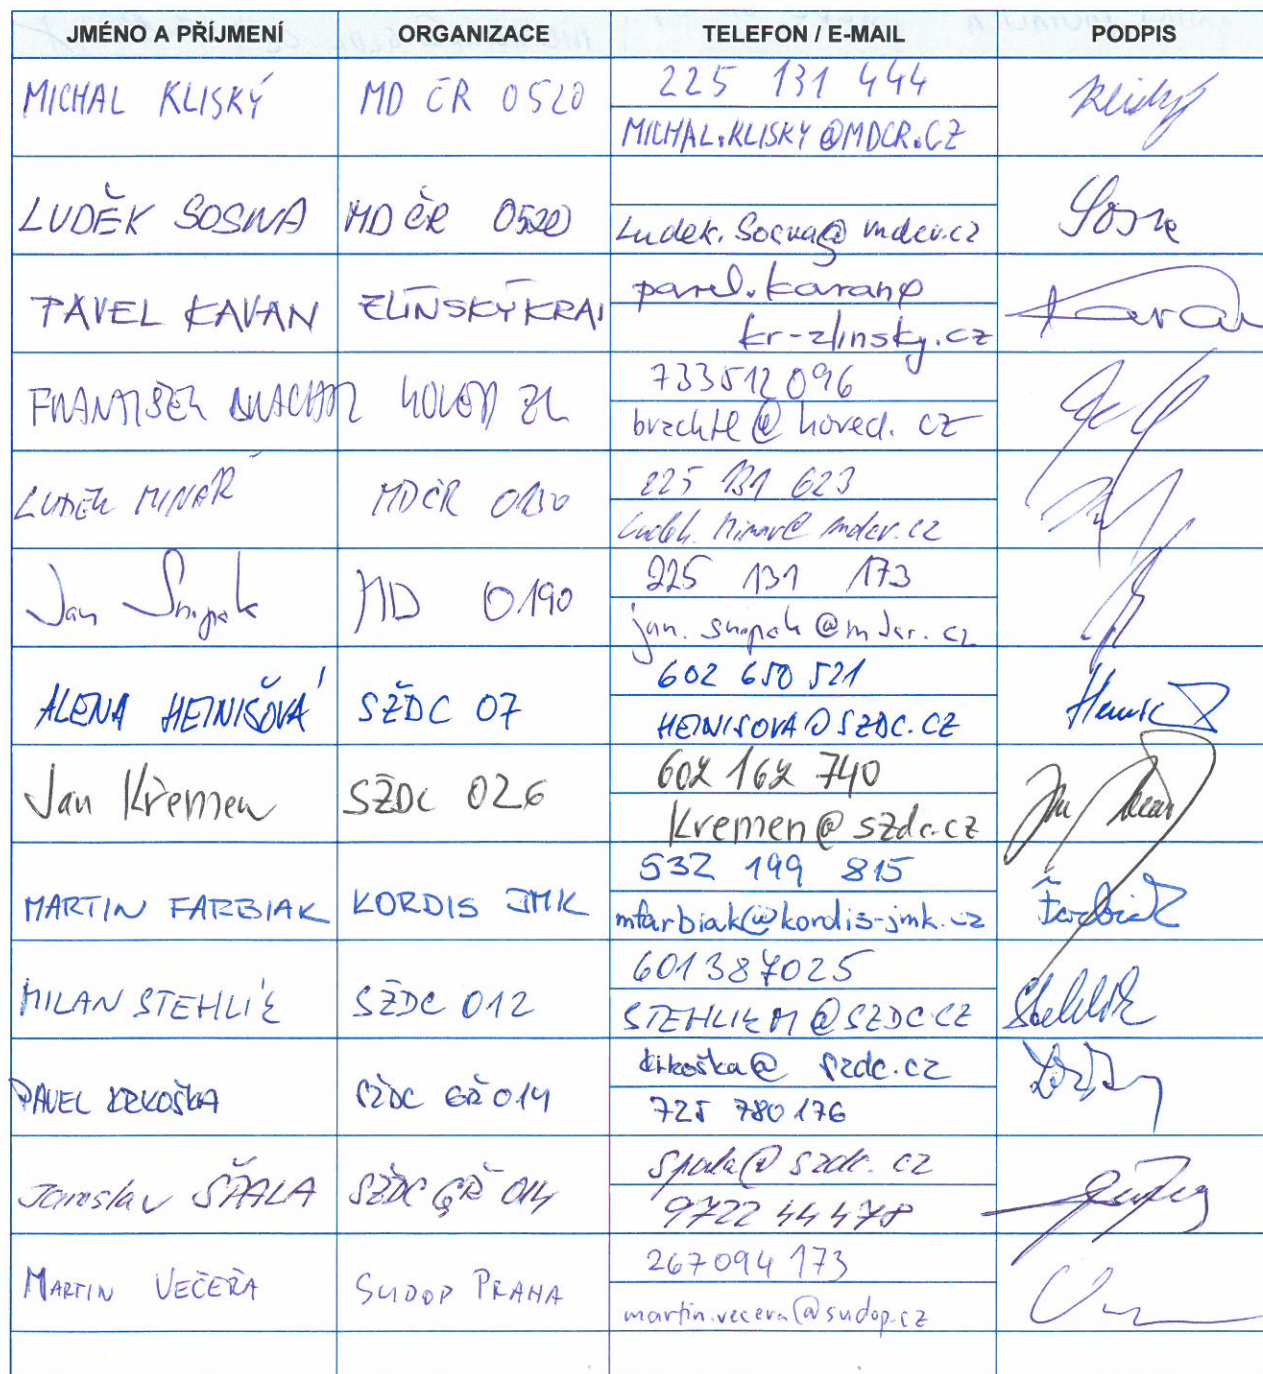 JMÉNO A PŘÍJMENÍ ORGANIZACE TELEFON / E-MAIL PODPIS
MICHAL KLISKÝ MD ČR 0520 225 131 444
MICHAL.KLISKY@MDCR.CZ
LUDĚK SOSNA MD ČR 0520
Ludek.Sosna@mdcr.cz
PAVEL KAVAN ZLÍNSKÝ KRAJ pavel.kavan@
kr-zlinsky.cz
FRANTIŠEK KOVED ZL 733512096
@koved.cz
LUDĚK MINÁŘ MDČR 0130 225 131 623
Ludek.Minar@mdcr.cz
Jan Šnupák MD 0190 225 131 173
jan.snupak@mdcr.cz
ALENA HEINIŠOVÁ SŽDC 07 602 650 521
HEINISOVA@SZDC.CZ
Jan Křemen SŽDC 026 602 162 740
Kremen@szdc.cz
MARTIN FARBIAK KORDIS JMK 532 199 815
mfarbiak@kordis-jmk.cz Farbiak
MILAN STEHLÍK SŽDC 012 601387025
STEHLIKM@SZDC.CZ Stehlík
PAVEL KRKOŠKA SŽDC GŘ 014 krkoška@szdc.cz
725 780 176
Jaroslav ŠPALA SŽDC GŘ 014 spala@szdc.cz
9722 44 478
MARTIN VEČEŘA SUDOP PRAHA 267094 173
martin.vecera@sudop.cz